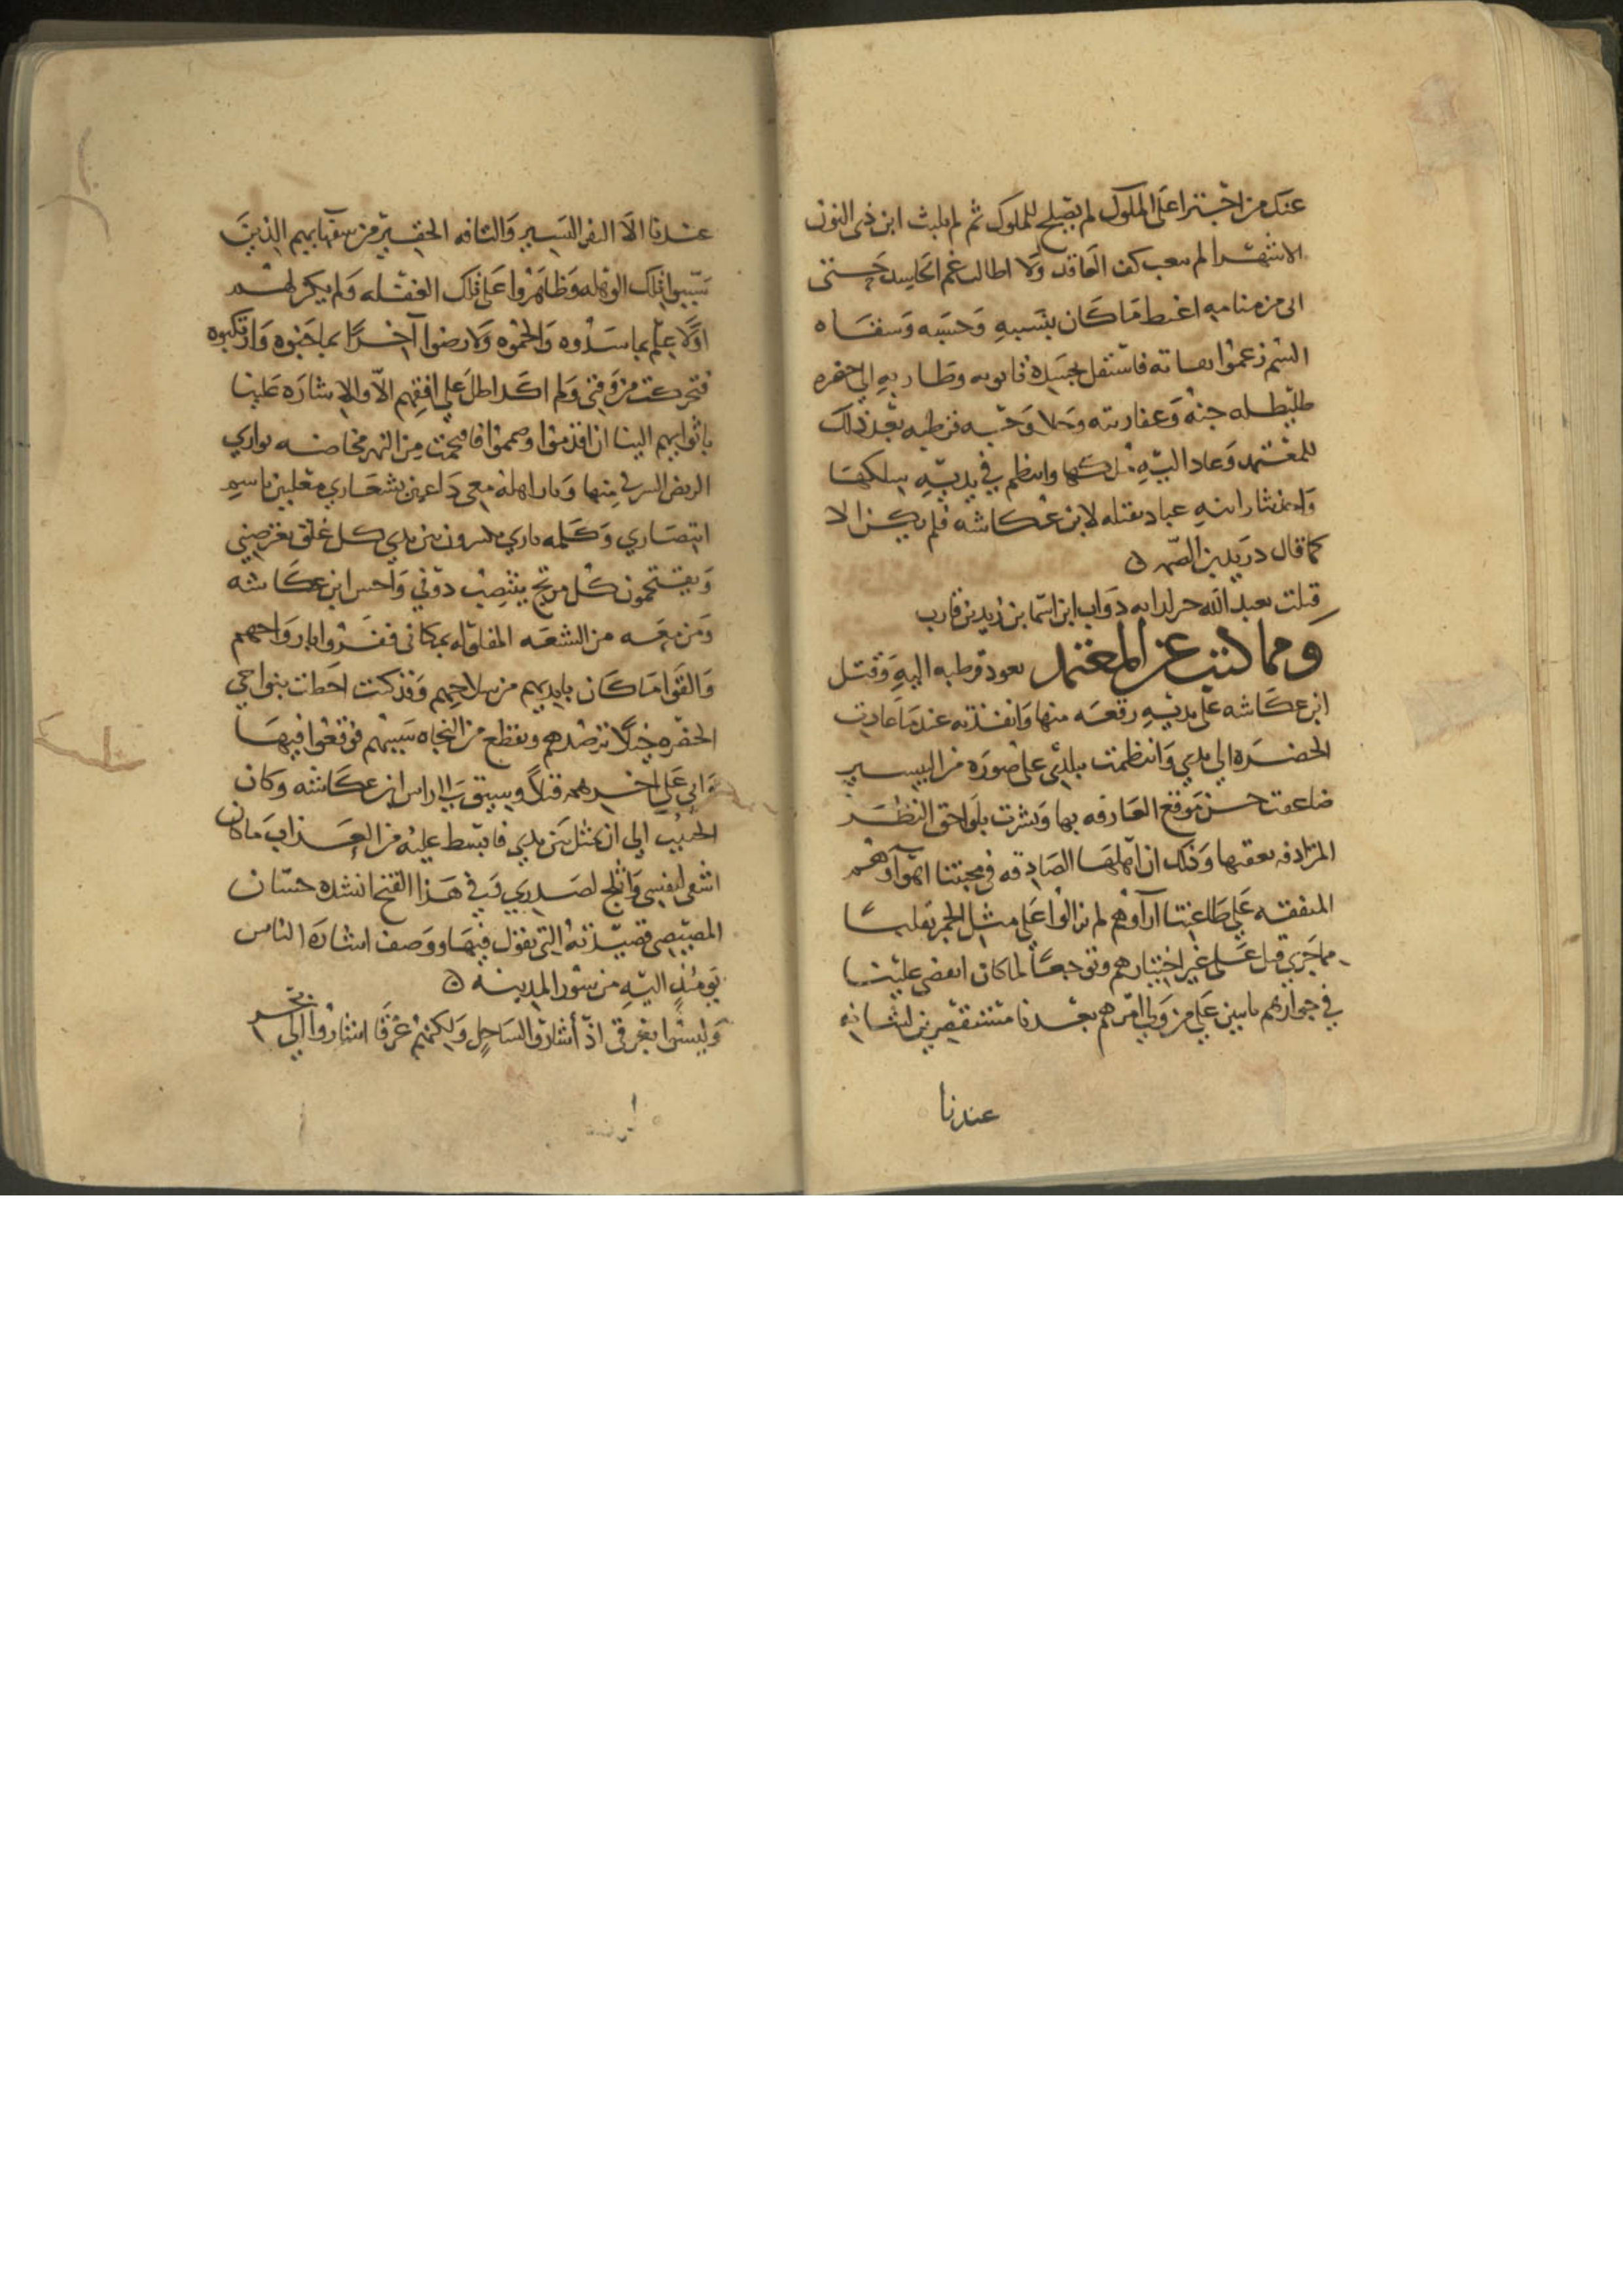 عندك من اجترا على الملوك لم يصلح للملوك ثم لم يلبث ابن ذي النون
الا شهرا لم يتعب كف العاقد ولا اطال غم الحاسد حتى
اتى من منامه اغبط ما كان بنسبه وحسبه وسقاه
السم زعموا فاستقل بجسده تابوته وطار به الى حفره
طليطله جنه وعفاريته وخلا وجه قرطبه بعد ذلك
للمعتمد وعاد اليه ملكها وانتظم في يديه سلكها
وادرك ثار ابنه عباد بقتله لابن عكاشه فلم يكن الا
كما قال دريد بن الصمه
قتلت بعبد الله خير لداته ذواب ابن اسما بن زيد بن قارب
ومما كتب عن المعتمد بعود قرطبه اليه وقتل
ابن عكاشه على يديه رقعه منها وانفذته عندما عادت
الحضره الي يدي وانتظمت ببلدي على صوره من اليسير
ضاعفت حسن موقع العارفه بها وبشرت بلواحق النظر
المترادفه بعقبها وذلك ان اهلها الصادقه في محبتنا اهوآوهم
المتفقه علي طاعتنا آرآوهم لم يزالوا علي مثل الجمر تقلبا
مما جري قبل على غير اختيارهم وتوجعا لما كان انقضى علينا
في جوارهم ناسين علي من ولي امرهم بعدنا مستقصرين لشانه
عندنا
عندنا الا النفر اليسير والتافه الحقير من سفهايهم الذين
سببوا تلك الوهله وظاهروا على تلك الفعله ولم يكن لهم
اولا علم بما سدوه والحموه ولا رضوا آخرا بما جنوه وارتكبوه
فتحركت من وقتي ولم اكد اطل علي افقهم الا والاشاره علينا
باثوابهم الينا ان اقدموا وصمموا فاقتحمت من النهر مخاضه توازي
الربض الشرقي منها وبادر اهله معي داعين بشعاري معلنين باسم
انتصاري وكلمه يكسرون بين يدي كل غلق يعترضني
ويقتحمون كل مرتج ينتصب دوني واحس ابن عكاشه
ومن معه من الشعه المفلوله بمكاني ففروا بارواحهم
والقوا ما كان بايديهم من سلاحهم وقد كنت احطت بنواحي
الحضره خيلا ترصدهم وتقطع من النجاه سببهم فوقعوا فيها
واتي علي اخرهم قتلا وسيق الي راس ابن عكاشه وكان
احب الي ان يمثل بين يدي فابسط عليه من العذاب ما كان
اشفى لنفسي واثلج لصدري وفي هذا الفتح انشده حسان
المصيصي قصيدته التي يقول فيها ووصف اشاره الناس
يومئذ اليه من سور المدينه
وليسوا بغرقى اذ أشاروا لساحل ولكنهم غرقا اشاروا الي بحر